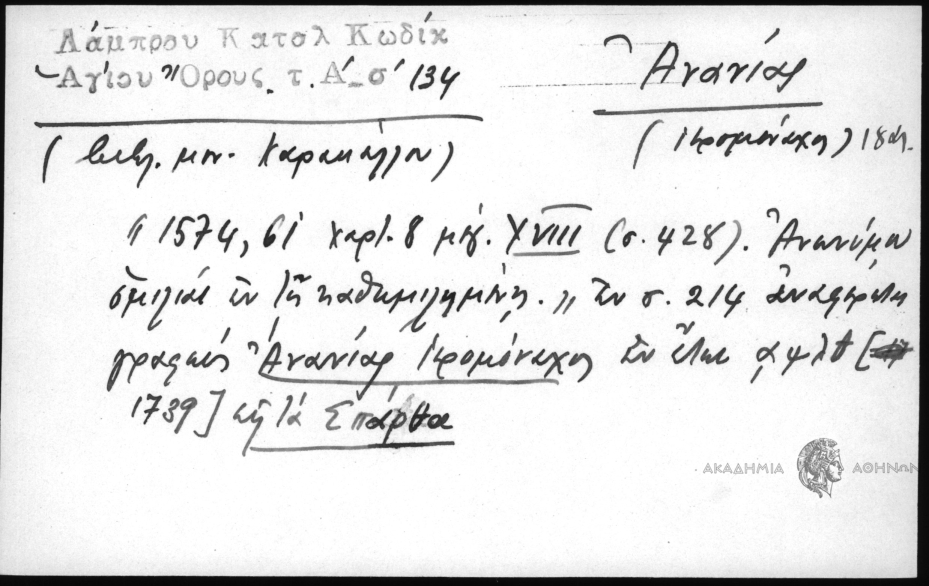 Λάμπρου Κατσλ Κωδίκ
Ἁγίου Ὄρους τ. Α΄ σ΄ 134
Ἀνανίας
(βιβλ. μον. Καρακάλλου)
(ἱερομόναχος) 18 αἰ.
" 1574, 61 χαρτ. 8 μιγ. XVIII (σ. 428). Ἀνωνύμου
ὁμιλίαι ἐν τῇ καθωμιλημένῃ. " Ἐν σ. 214 ἀναφέρεται
γραφεὺς Ἀνανίας ἱερομόναχος ἐν ἔτει αψλθ [
1739] Σπάρτα
ΑΚΑΔΗΜΙΑ ΑΘΗΝΩΝ